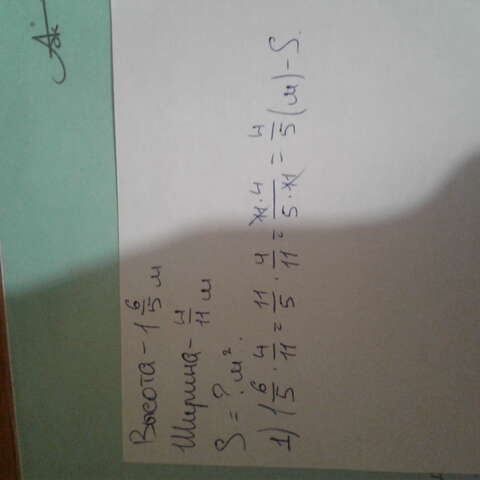 Высота - 1 6/5 м
Ширина - 4/11 м
S = ? м².
1) 1 6/5 · 4/11 = 11/5 · 4/11 = 11·4/5·11 = 4/5 (м) - S.